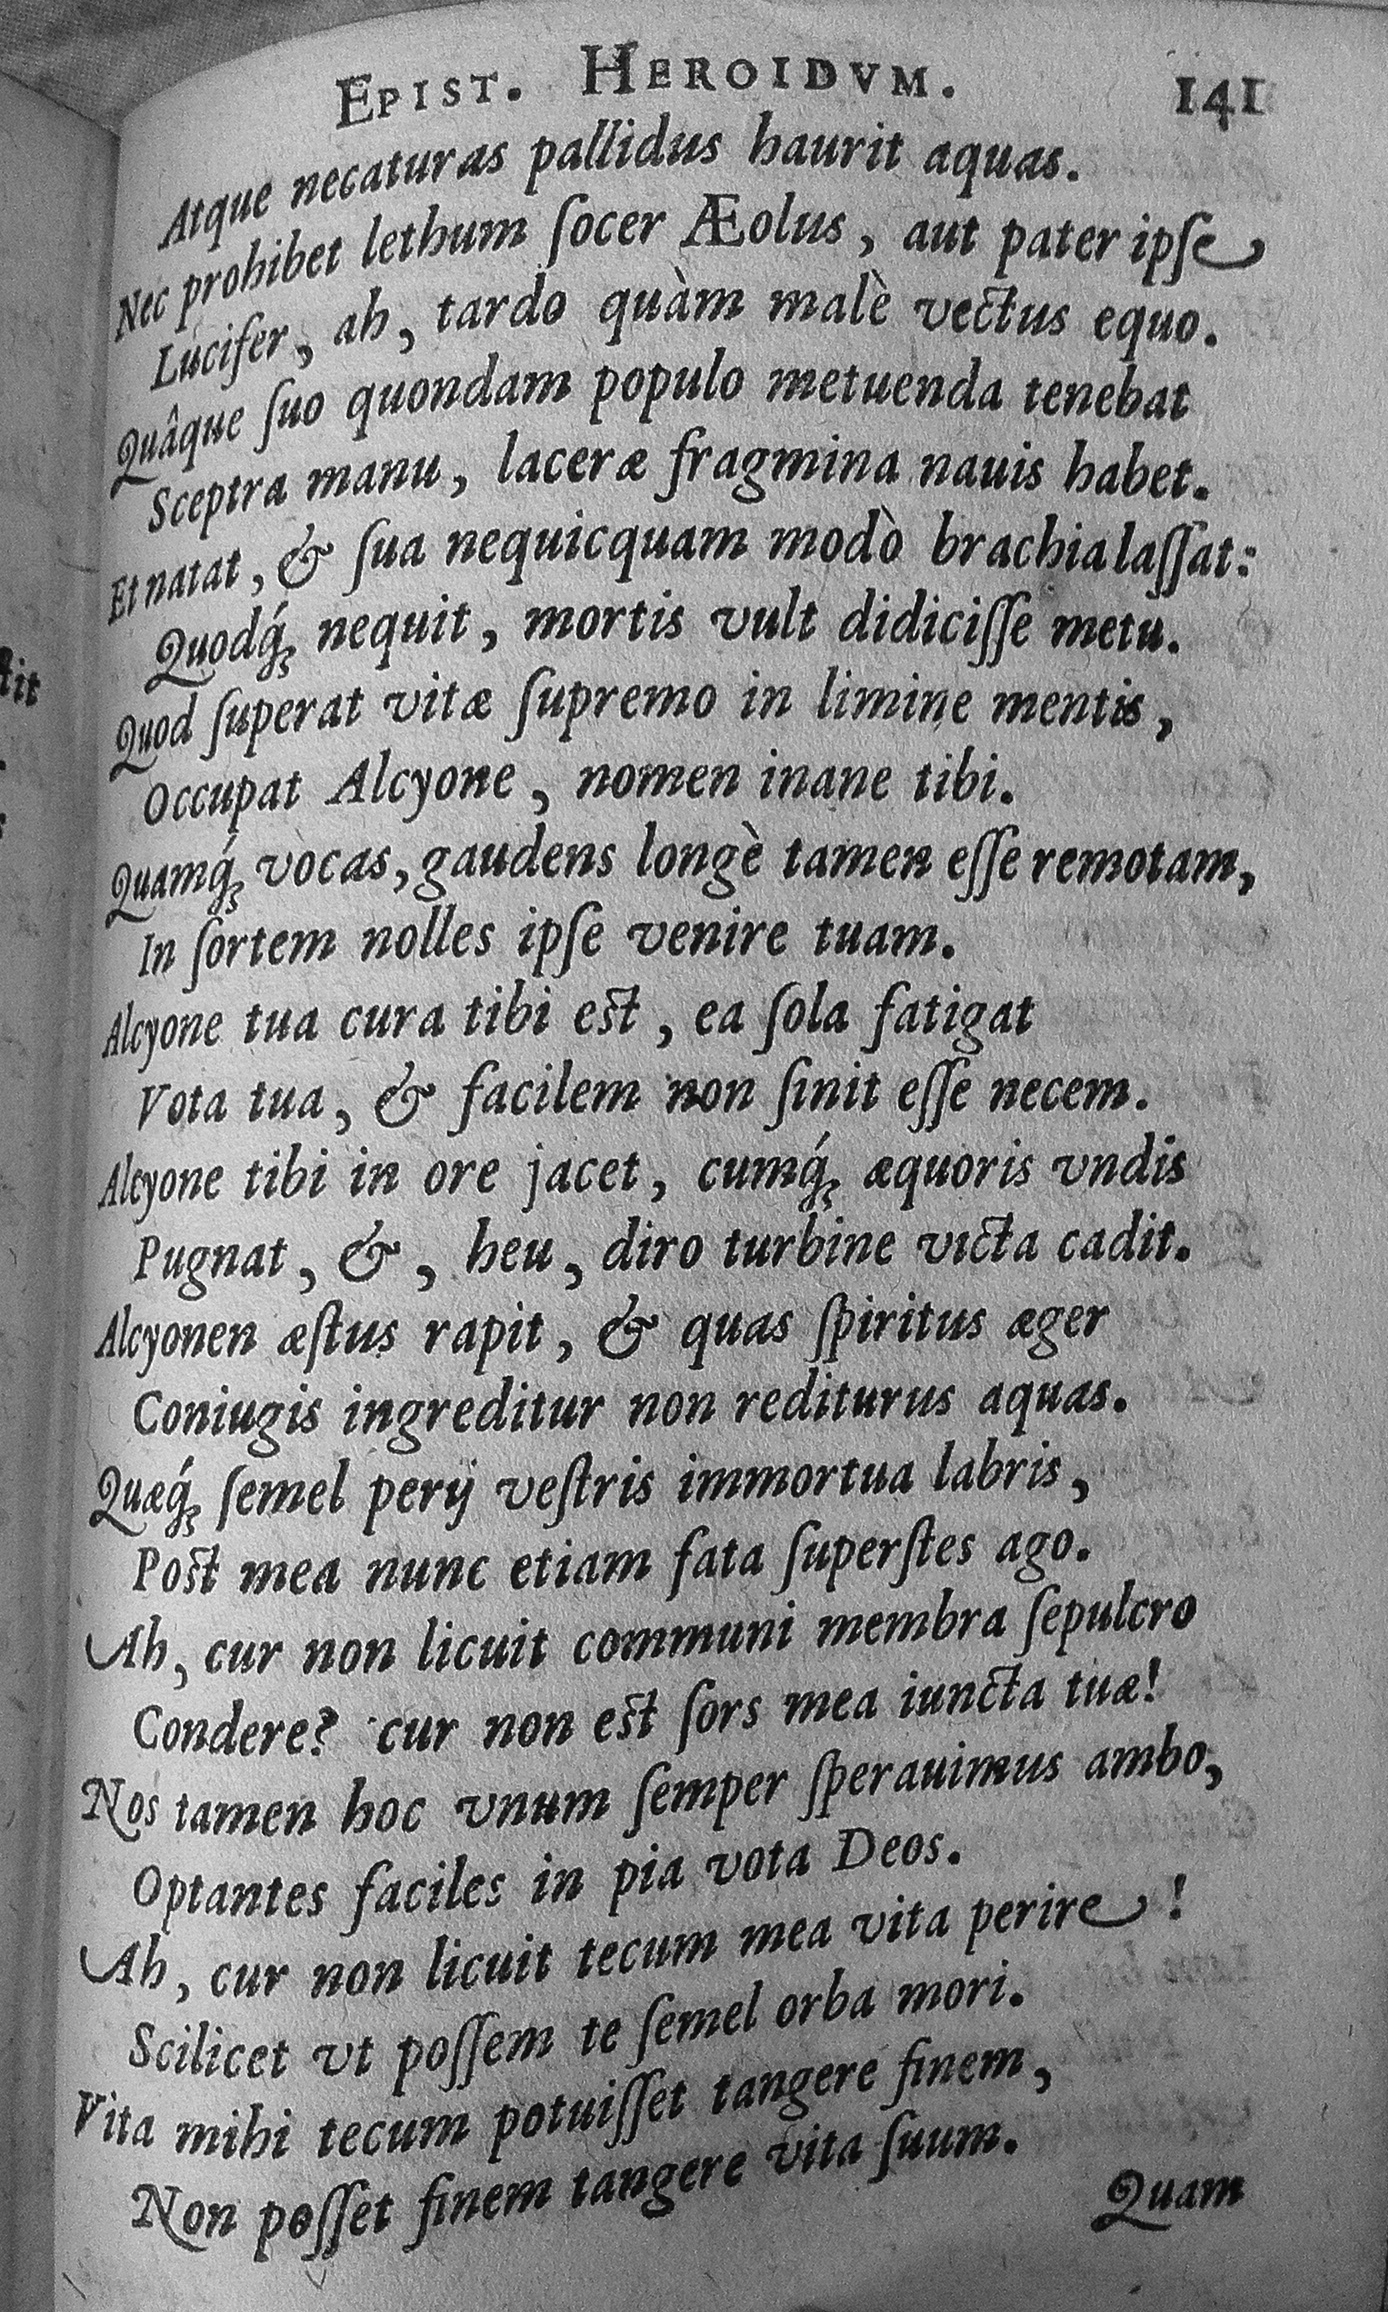 EPIST. HEROIDVM. 141
Atque necaturas pallidus haurit aquas.
Nec prohibet lethum ſocer Æolus, aut pater ipſe
Lucifer, ah, tardo quàm malè vectus equo.
Quâque ſuo quondam populo metuenda tenebat
Sceptra manu, laceræ fragmina nauis habet.
Et natat, & ſua nequicquam modò brachia laſſat:
Quodq́ꝫ nequit, mortis vult didiciſſe metu.
Quod ſuperat vitæ ſupremo in limine mentis,
Occupat Alcyone, nomen inane tibi.
Quamq́ꝫ vocas, gaudens longè tamen eſſe remotam,
In ſortem nolles ipſe venire tuam.
Alcyone tua cura tibi est, ea ſola fatigat
Vota tua, & facilem non ſinit eſſe necem.
Alcyone tibi in ore jacet, cumq́ꝫ æquoris vndis
Pugnat, &, heu, diro turbine victa cadit.
Alcyonen æſtus rapit, & quas ſpiritus æger
Coniugis ingreditur non rediturus aquas.
Quæq́ꝫ ſemel perij veſtris immortua labris,
Post mea nunc etiam fata ſuperſtes ago.
Ah, cur non licuit communi membra ſepulcro
Condere? cur non est ſors mea iuncta tuæ!
Nos tamen hoc vnum ſemper ſperauimus ambo,
Optantes faciles in pia vota Deos.
Ah, cur non licuit tecum mea vita perire!
Scilicet vt poſſem te ſemel orba mori.
Vita mihi tecum potuiſſet tangere finem,
Non poſſet finem tangere vita ſuum.
Quam